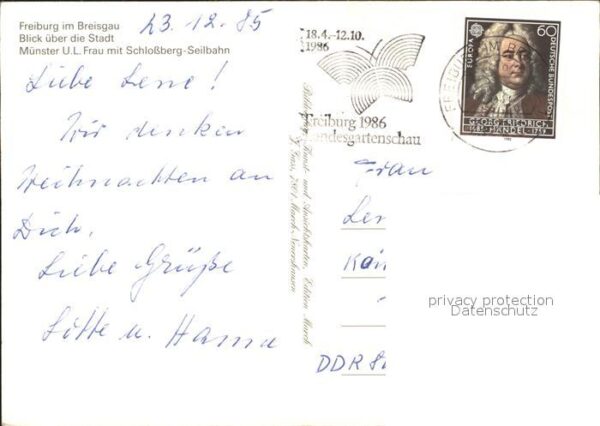 Freiburg im Breisgau
Blick über die Stadt
Münster U.L. Frau mit Schloßberg-Seilbahn
23.12.85
Liebe Lene!
Wir denken
Weihnachten an
Dich.
Liebe Grüße
Lotte u. Hanna
18.4.-12.10.
1986
Freiburg 1986
Landesgartenschau
EUROPA
60
DEUTSCHE BUNDESPOST
GEORG FRIEDRICH
HÄNDEL
Frau
Len
DDR 8
privacy protection
Datenschutz